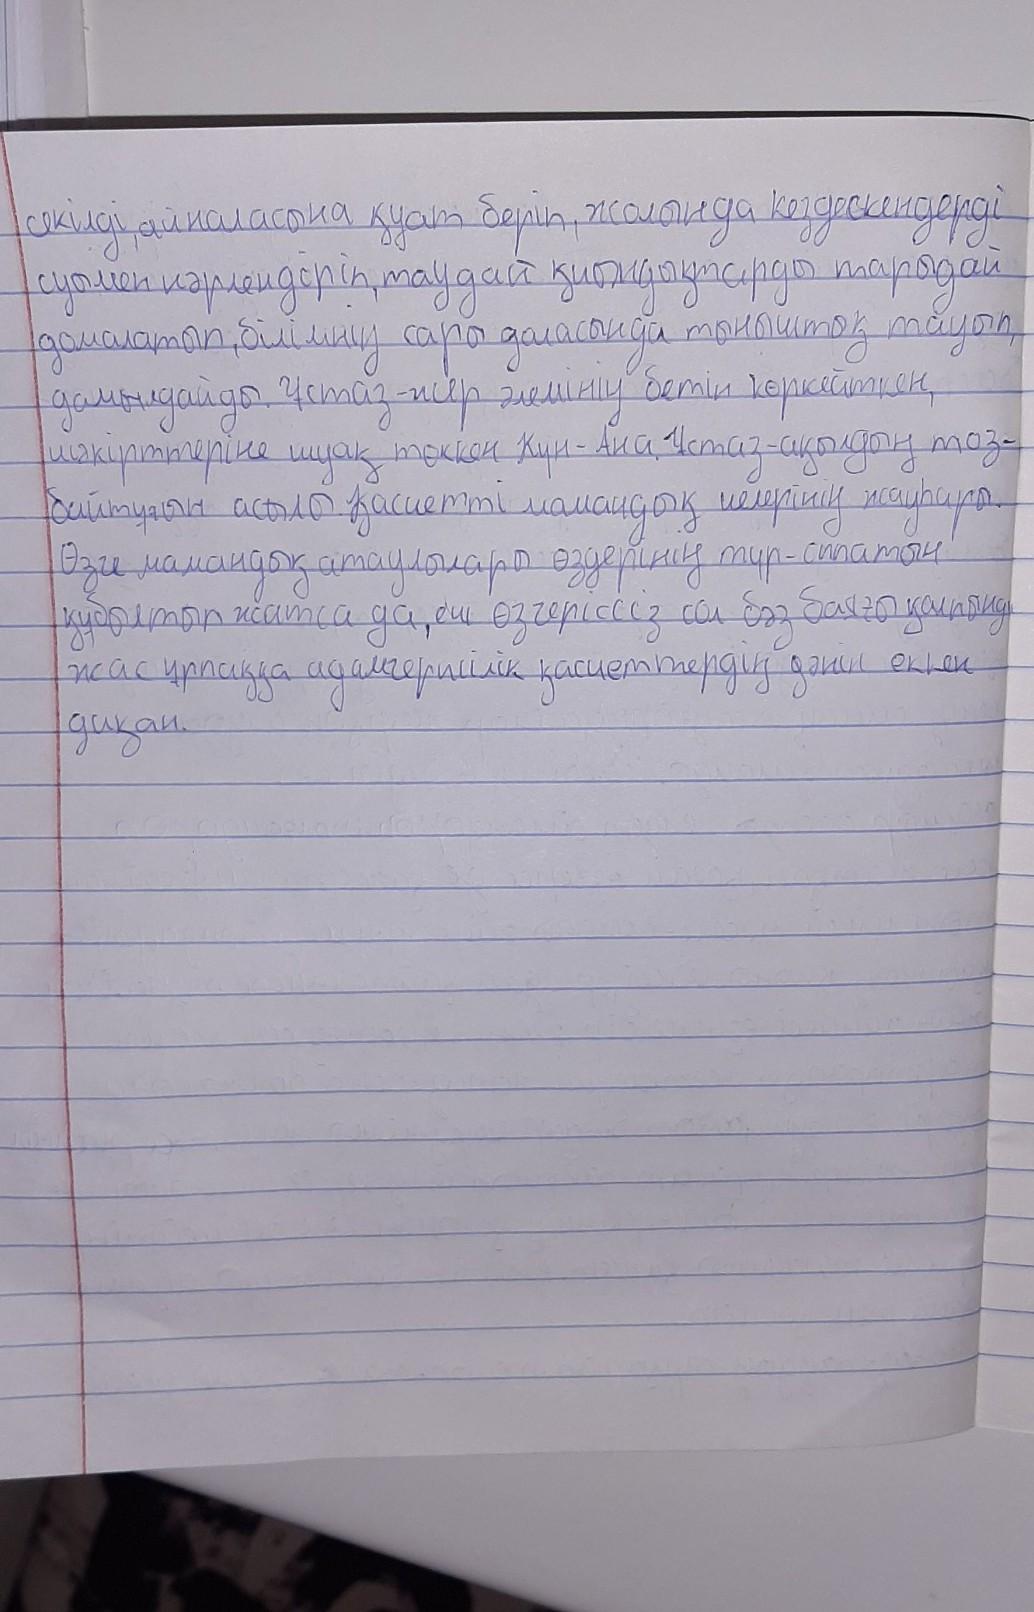 секілді, айналасына қуат беріп, жолында кездескендерді
суымен нәрлендіріп, таудай қиындықтарды тарыдай
домалатып, білімнің сары даласында тыныштық тауып,
дамылдайды. Ұстаз-жер әлемінің бетін көркейткен,
шәкірттеріне шуақ төккен Күн-Ана. Ұстаз-ақылдың тоз-
байтұғын асылы қасиетті мамандық иелерінің жауһары.
Өзге мамандық атаулылары өздерінің түр-сипатын
құбылтып жатса да, еш өзгеріссіз сол баз баяғы қалпында
жас ұрпаққа адамгершілік қасиеттердің дәнін еккен
диқан.